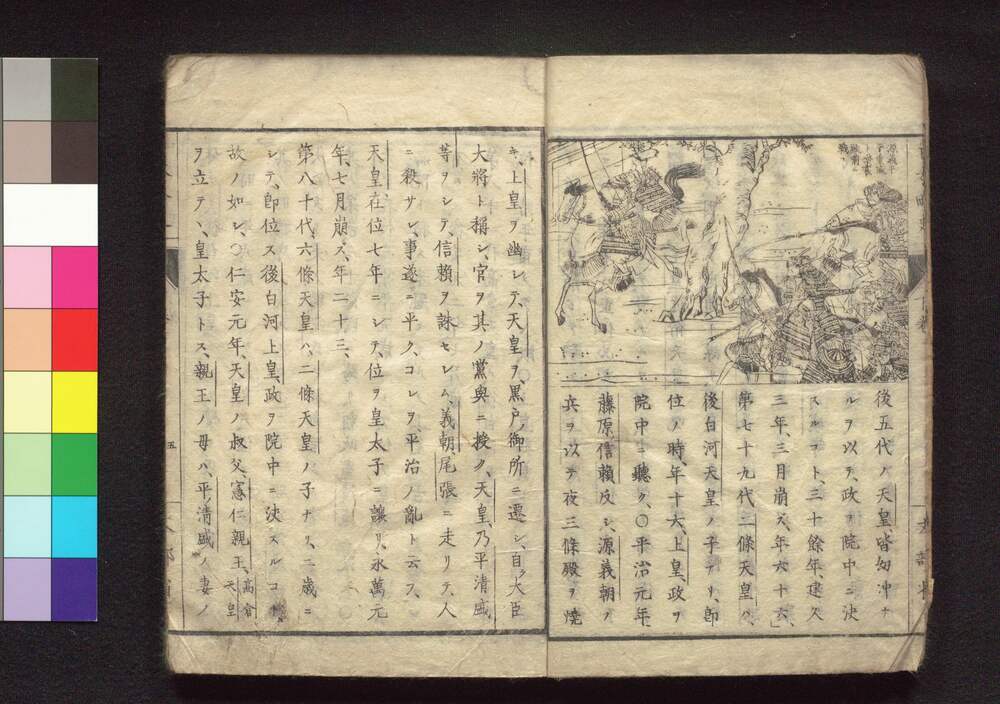 後五代ノ天皇、皆幼冲ナ
ルヲ以テ、政ヲ院中ニ決
スルコト、三十餘年、建久
三年、三月崩ズ、年六十六、
第七十九代二條天皇ハ、
後白河天皇ノ子ナリ、即
位ノ時、年十六、上皇、政ヲ
院中ニ聽ク、〇平治元年、
藤原信賴反シ、源義朝ヲ
兵ヲ以テ夜三條殿ヲ燒
キ、上皇ヲ幽シテ、天皇ヲ、黒戸ノ御所ニ遷シ、自ラ大臣
大將ト稱シ、官ヲ其ノ黨與ニ授ク、天皇、乃平清盛
等ヲシテ、信賴ヲ誅セシム、義朝尾張ニ走リテ、人
ニ殺サレ、事遂ニ平ク、コレヲ、平治ノ亂ト云フ、
天皇、在位七年ニシテ、位ヲ皇太子ニ讓リ、永萬元
年、七月崩ズ、年二十三、
第八十代、六條天皇ハ、二條天皇ノ子ナリ、二歳ニ
シテ、即位ス後白河上皇、政ヲ院中ニ決スルコト、
故ノ如シ、〇仁安元年、天皇ノ叔父憲仁親王、高倉天皇
ヲ立テヽ、皇太子トス、親王ノ母ハ、平ノ清盛ノ妻ノ
五